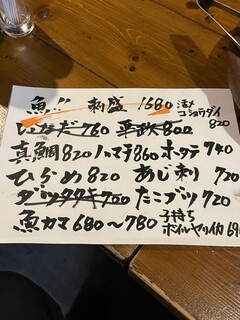 魚!! 刺盛 1680 活〆コショウダイ 820
いなだ 760 平政 800
真鯛 820 ハマチ 860 ホタテ 740
ひらめ 820 あじ刺 720
ダツタタキ 700 たこブツ 720
魚カマ 680〜780 子持ちボイルヤリイカ 690